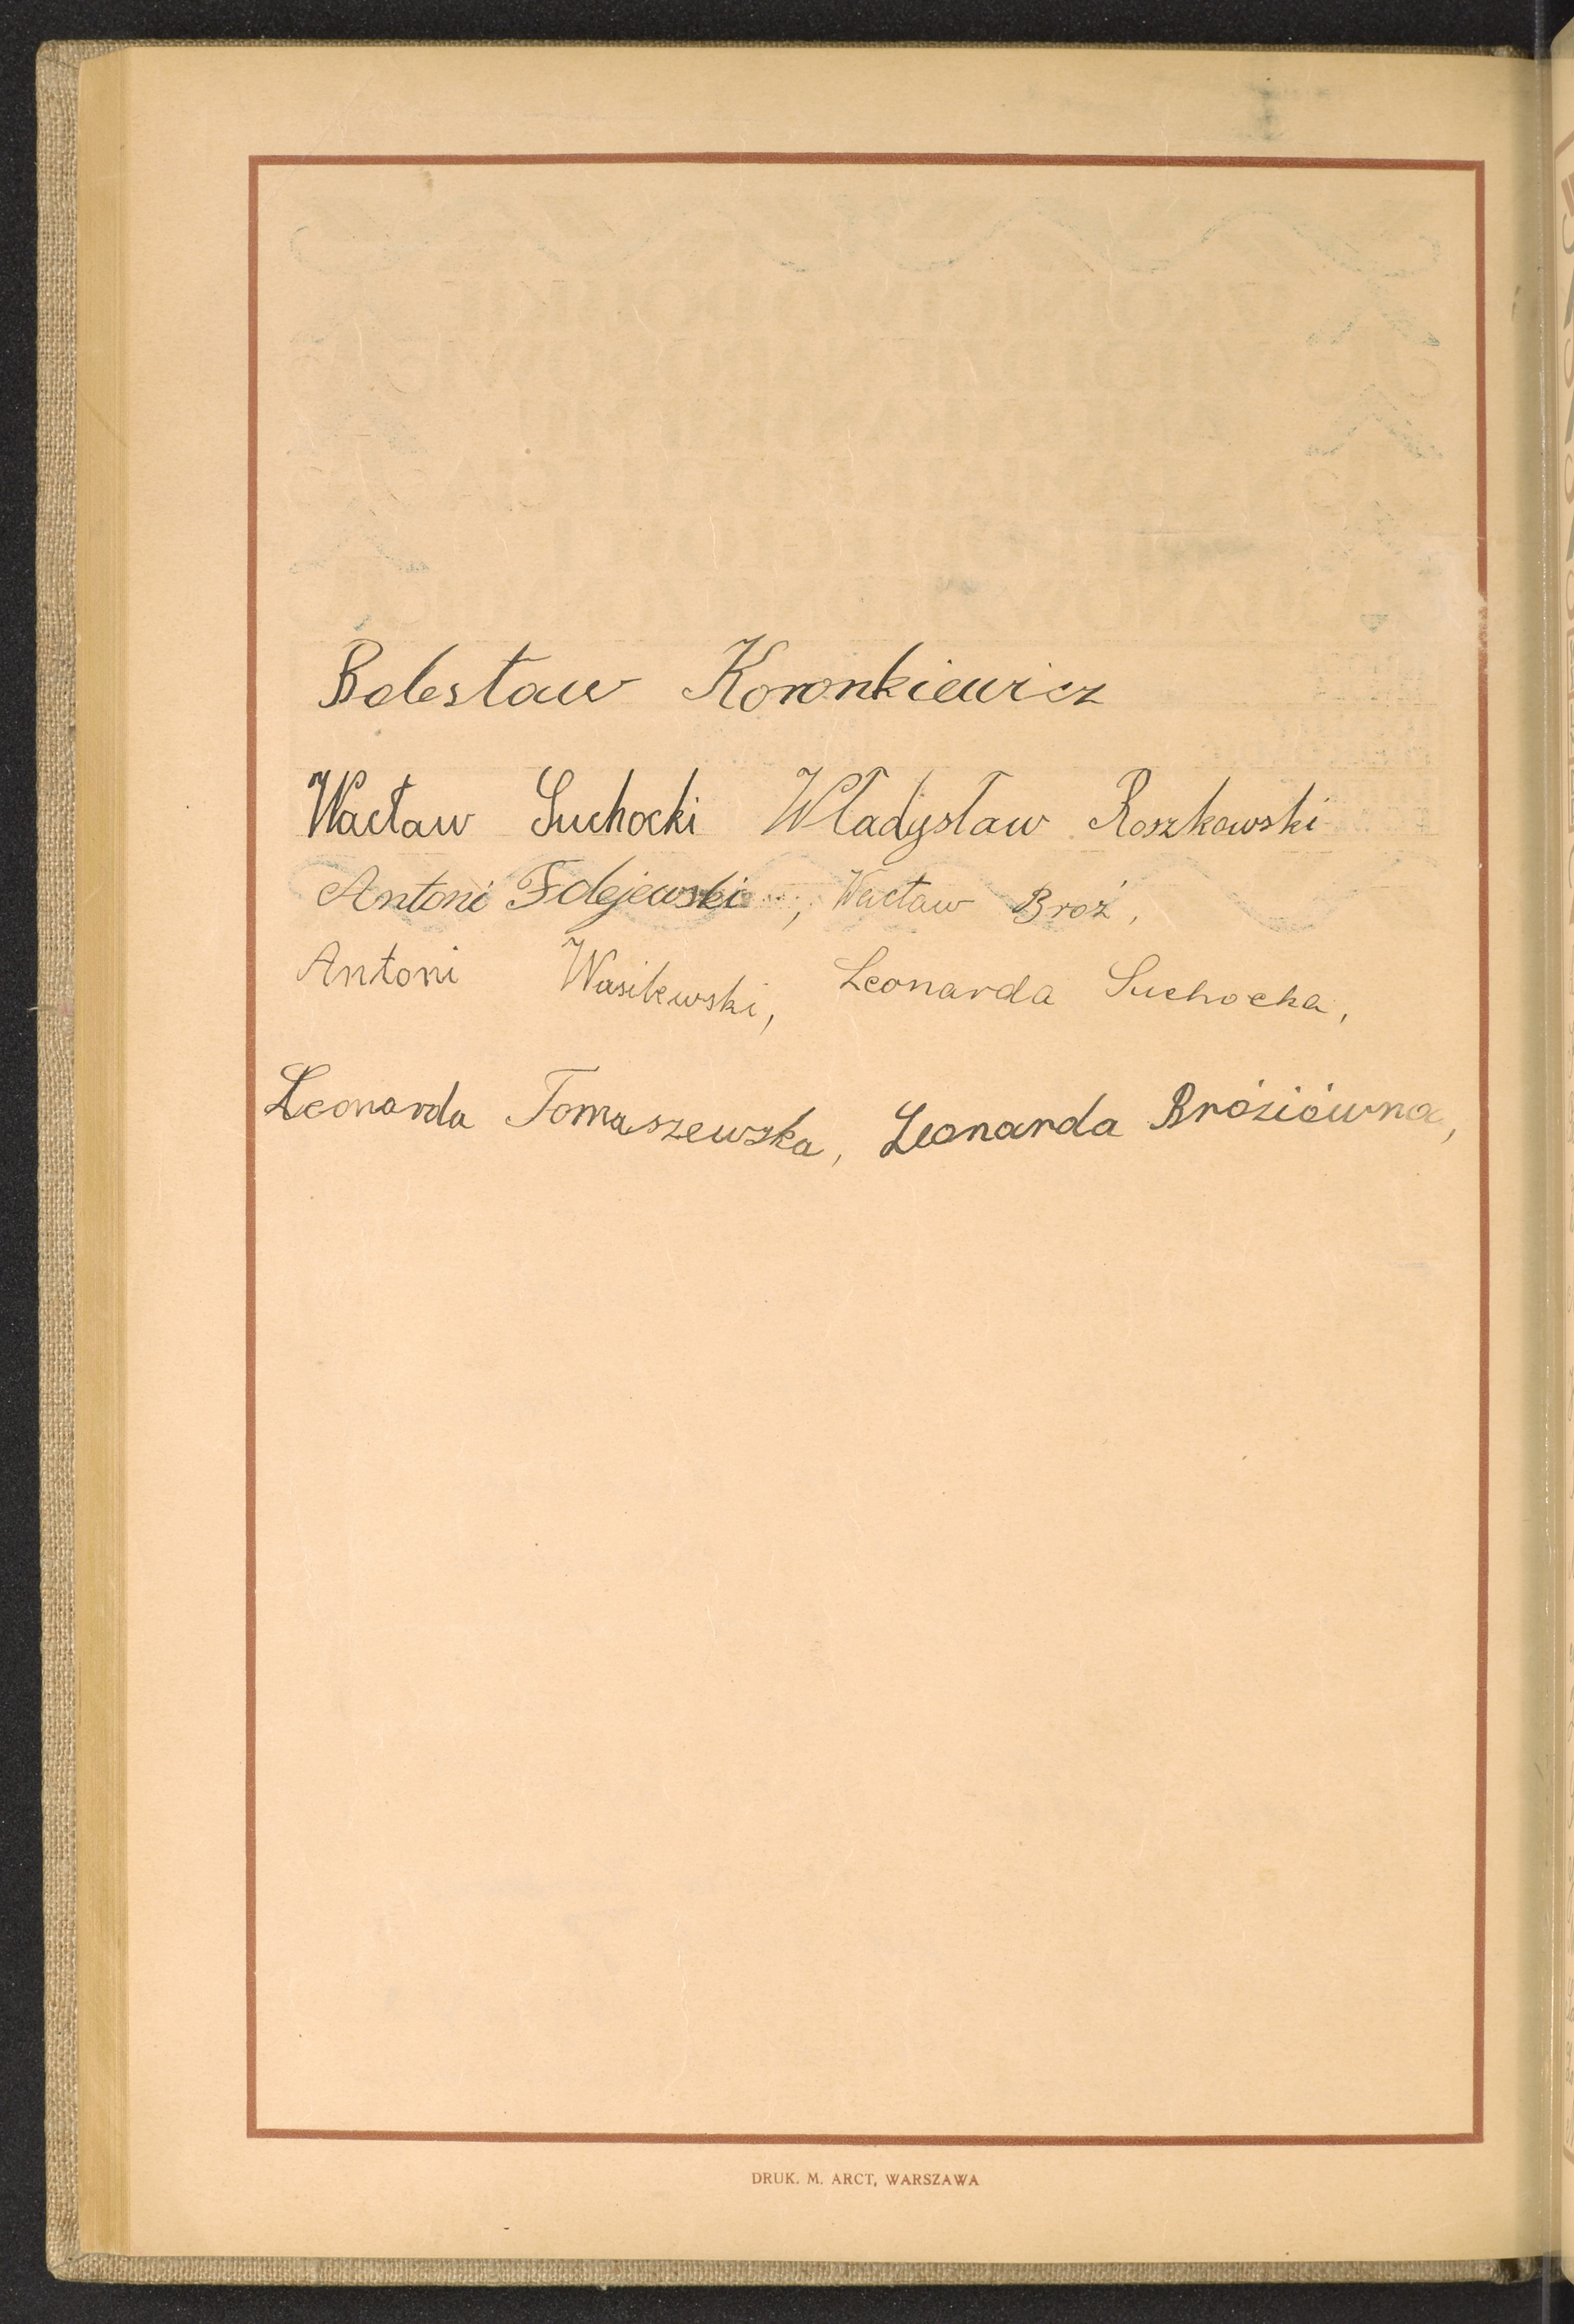 Bolesław Koronkiewicz
Wacław Suchocki Władysław Roszkowski
Antoni Fdejewski, Wacław Broż,
Antoni Wasilewski, Leonarda Suchocka,
Leonarda Tomaszewska, Leonarda Bróżiówna,
DRUK. M. ARCT, WARSZAWA